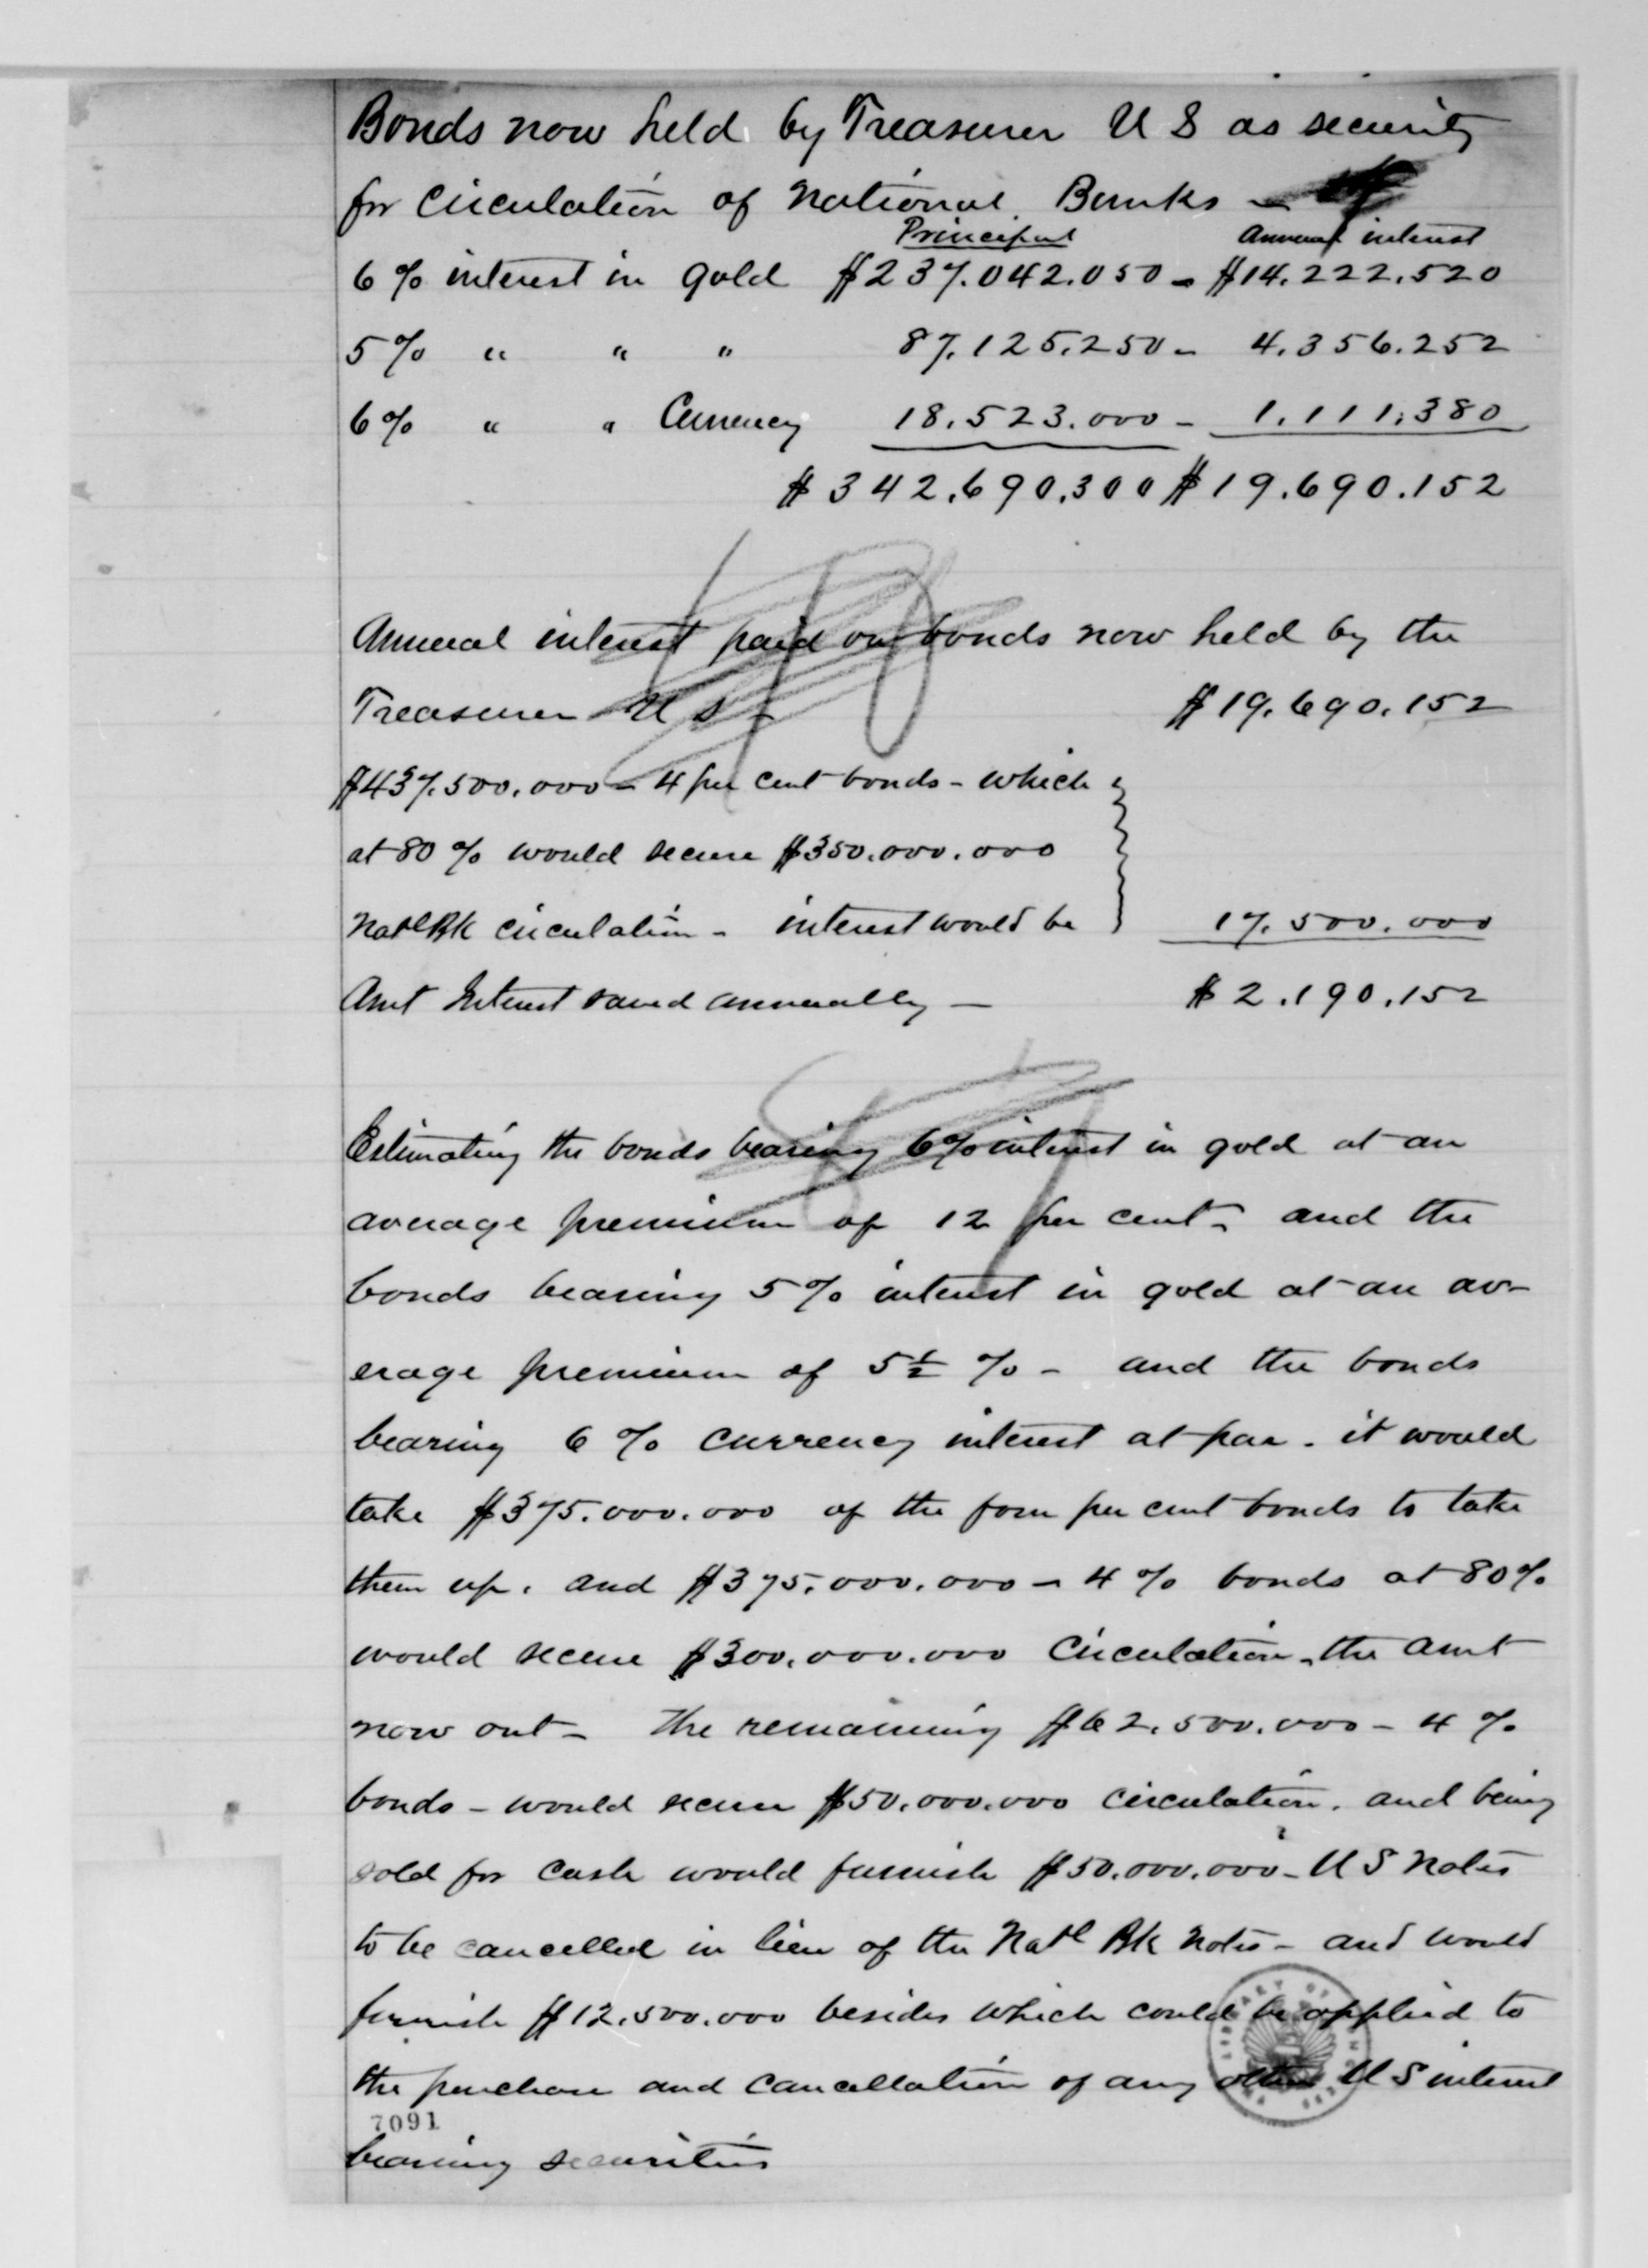 Bonds now held by Treasurer U S as security
for circulation of National Banks –
Principal Annual interest
6 % interest in gold $237.042.050 – $14.222.520
5% " " " 87.125.250 – 4.356.252
6% " " Currency 18.523.000 – 1.111.380
$342.690.300 $19.690.152
Annual interest paid on bonds now held by the
Treasurer U S – $19.690.152
$437.500.000 – 4 per cent bonds – which
at 80 % would secure $350.000.000
Natl Bk circulation – interest would be 17.500.000
Amt Interest saved annually – $2.190.152
Estimating the bonds bearing 6% interest in gold at an
average premium of 12 per cent – and the
bonds bearing 5% interest in gold at an av-
erage premium of 5½ % – and the bonds
bearing 6 % currency interest at par. it would
take $375.000.000 of the four per cent bonds to take
them up. and $375.000.000 – 4 % bonds at 80%
would secure $300.000.000 circulation – the amt
now out – The remaining $62.500.000 – 4 %
bonds – would secure $50.000.000 circulation. and being
sold for cash would furnish $50.000.000 – U S Notes
to be cancelled in lieu of the Natl Bk Notes – and would
furnish $12.500.000 besides which could be applied to
the purchase and cancellation of any other U S interest
7091
bearing securities